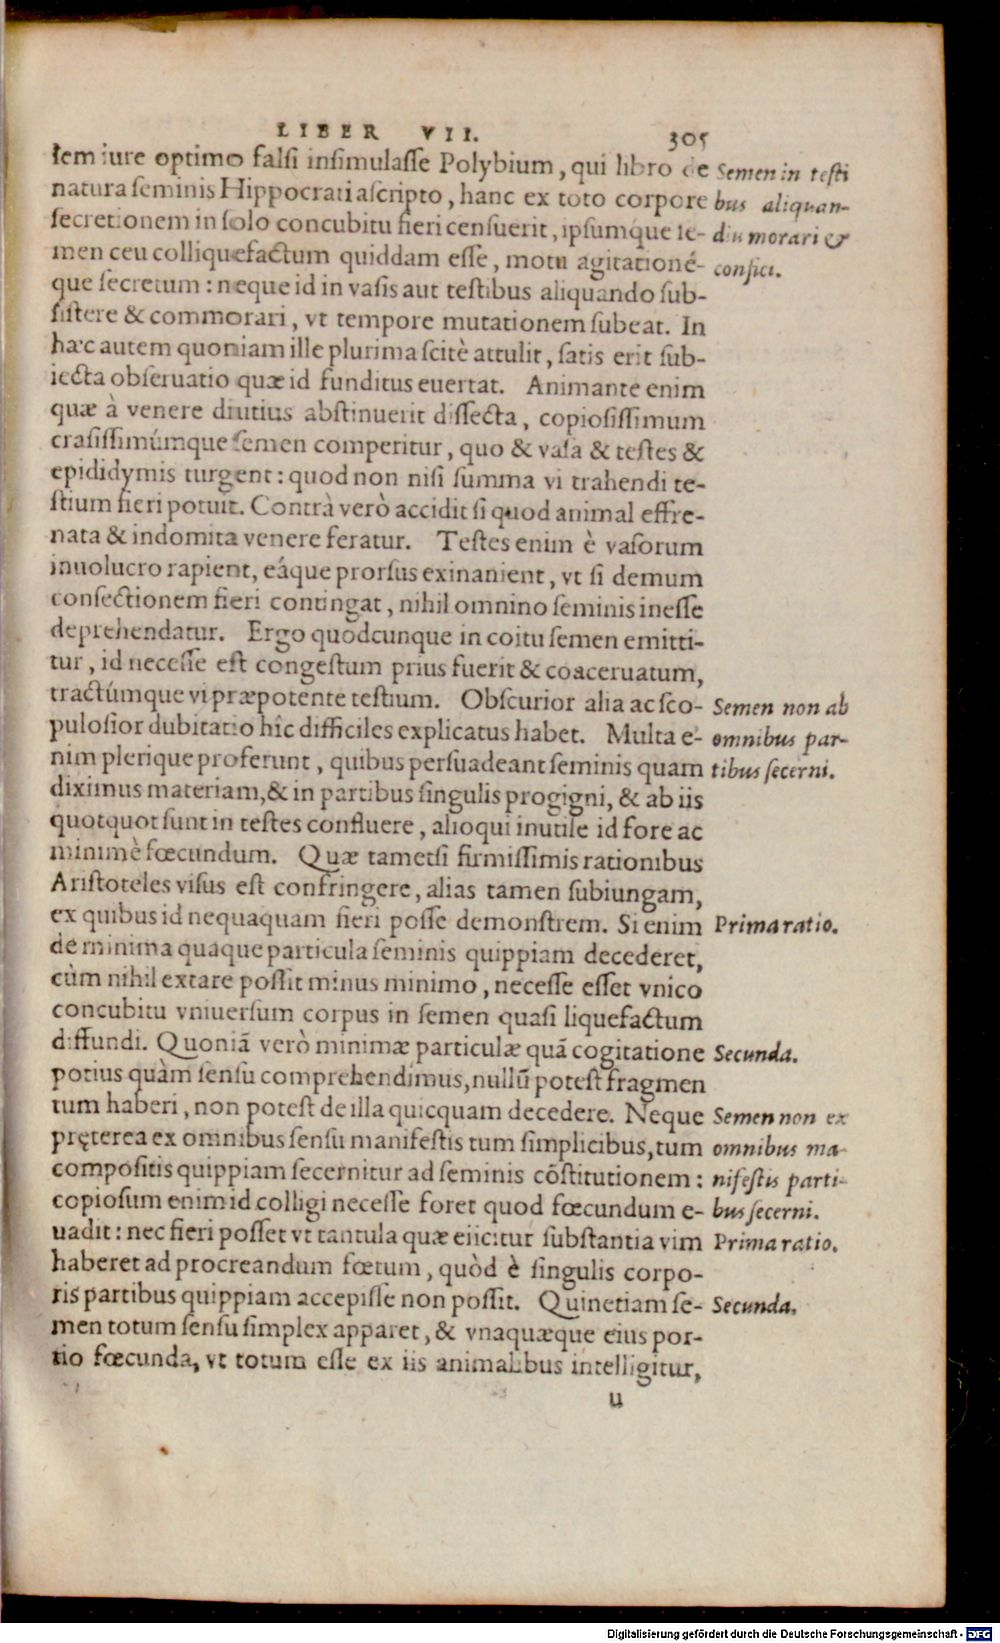 LIBER VII. 305
tem iure optimo falsi insimulasse Polybium, qui libro de
natura seminis Hippocrati ascripto, hanc ex toto corpore
secretionem in solo concubitu fieri censuerit, ipsumque se-
men ceu colliquefactum quiddam esse, motu agitationé-
que secretum: neque id in vasis aut testibus aliquando sub-
sistere & commorari, vt tempore mutationem subeat. In
hæc autem quoniam ille plurima scitè attulit, satis erit sub-
iecta obseruatio quæ id funditus euertat. Animante enim
quæ à venere diutius abstinuerit dissecta, copiosissimum
crassissimúmque semen comperitur, quo & vasa & testes &
epididymis turgent: quod non nisi summa vi trahendi te-
stium fieri potuit. Contrà verò accidit si quod animal effre-
nata & indomita venere feratur. Testes enim è vasorum
inuolucro rapient, eáque prorsus exinanient, vt si demum
consectionem fieri contingat, nihil omnino seminis inesse
deprehendatur. Ergo quodcunque in coitu semen emitti-
tur, id necesse est congestum prius fuerit & coaceruatum,
tractúmque vi præpotente testium. Obscurior alia ac sco-
pulosior dubitatio hîc difficiles explicatus habet. Multa e-
nim plerique proferunt, quibus persuadeant seminis quam
diximus materiam, & in partibus singulis progigni, & ab iis
quotquot sunt in testes confluere, alioqui inutile id fore ac
minimè fœcundum. Quæ tametsi firmissimis rationibus
Aristoteles visus est confringere, alias tamen subiungam,
ex quibus id nequaquam fieri posse demonstrem. Si enim
de minima quaque particula seminis quippiam decederet,
cùm nihil extare possit minus minimo, necesse esset vnico
concubitu vniuersum corpus in semen quasi liquefactum
diffundi. Quoniã verò minimæ particulæ quã cogitatione
potius quàm sensu comprehendimus, nullũ potest fragmen
tum haberi, non potest de illa quicquam decedere. Neque
pręterea ex omnibus sensu manifestis tum simplicibus, tum
compositis quippiam secernitur ad seminis cõstitutionem:
copiosum enim id colligi necesse foret quod fœcundum e-
uadit: nec fieri posset vt tantula quæ eiicitur substantia vim
haberet ad procreandum fœtum, quòd è singulis corpo-
ris partibus quippiam accepisse non possit. Quinetiam se-
men totum sensu simplex apparet, & vnaquæque eius por-
tio fœcunda, vt totum esse ex iis animalibus intelligitur,
u
Semen in testi
bus aliquan-
diu morari &
confici.
Semen non ab
omnibus par-
tibus secerni.
Prima ratio.
Secunda.
Semen non ex
omnibus ma-
nifestis parti-
bus secerni.
Prima ratio.
Secunda.
Digitalisierung gefördert durch die Deutsche Forschungsgemeinschaft - DFG